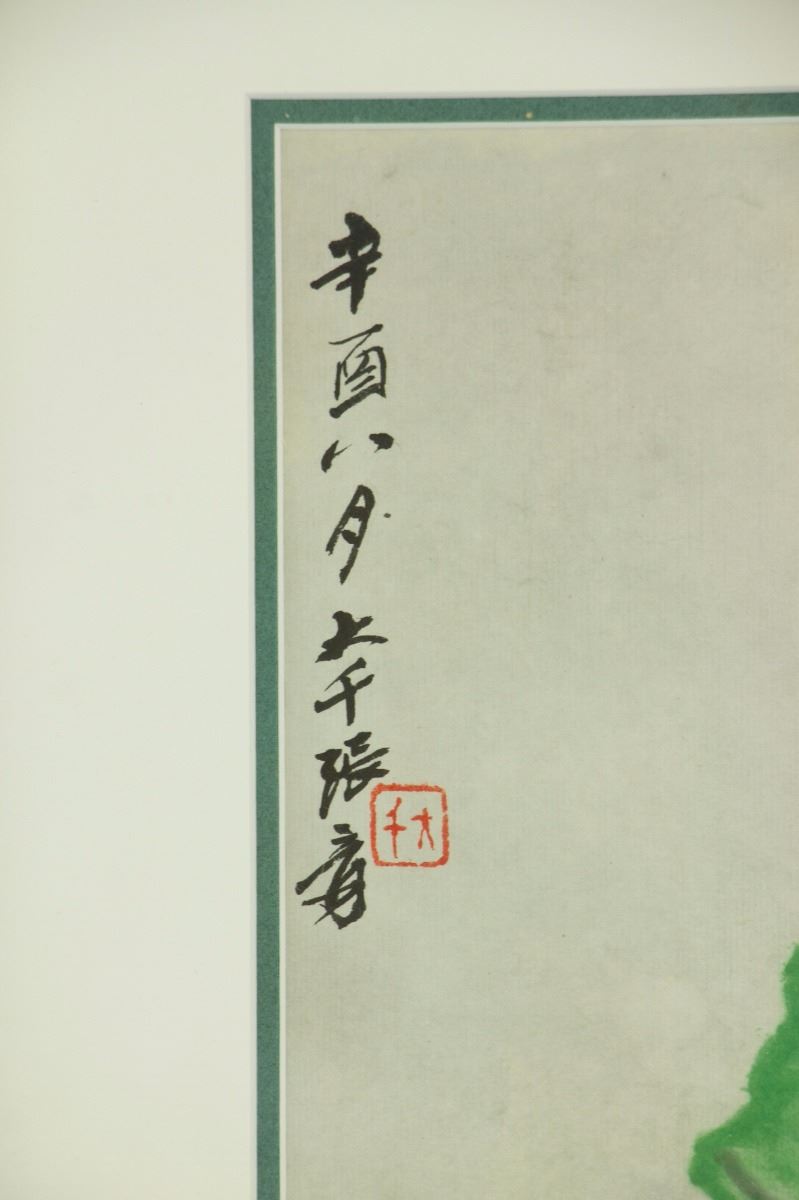 辛酉八月大千張爰
大千